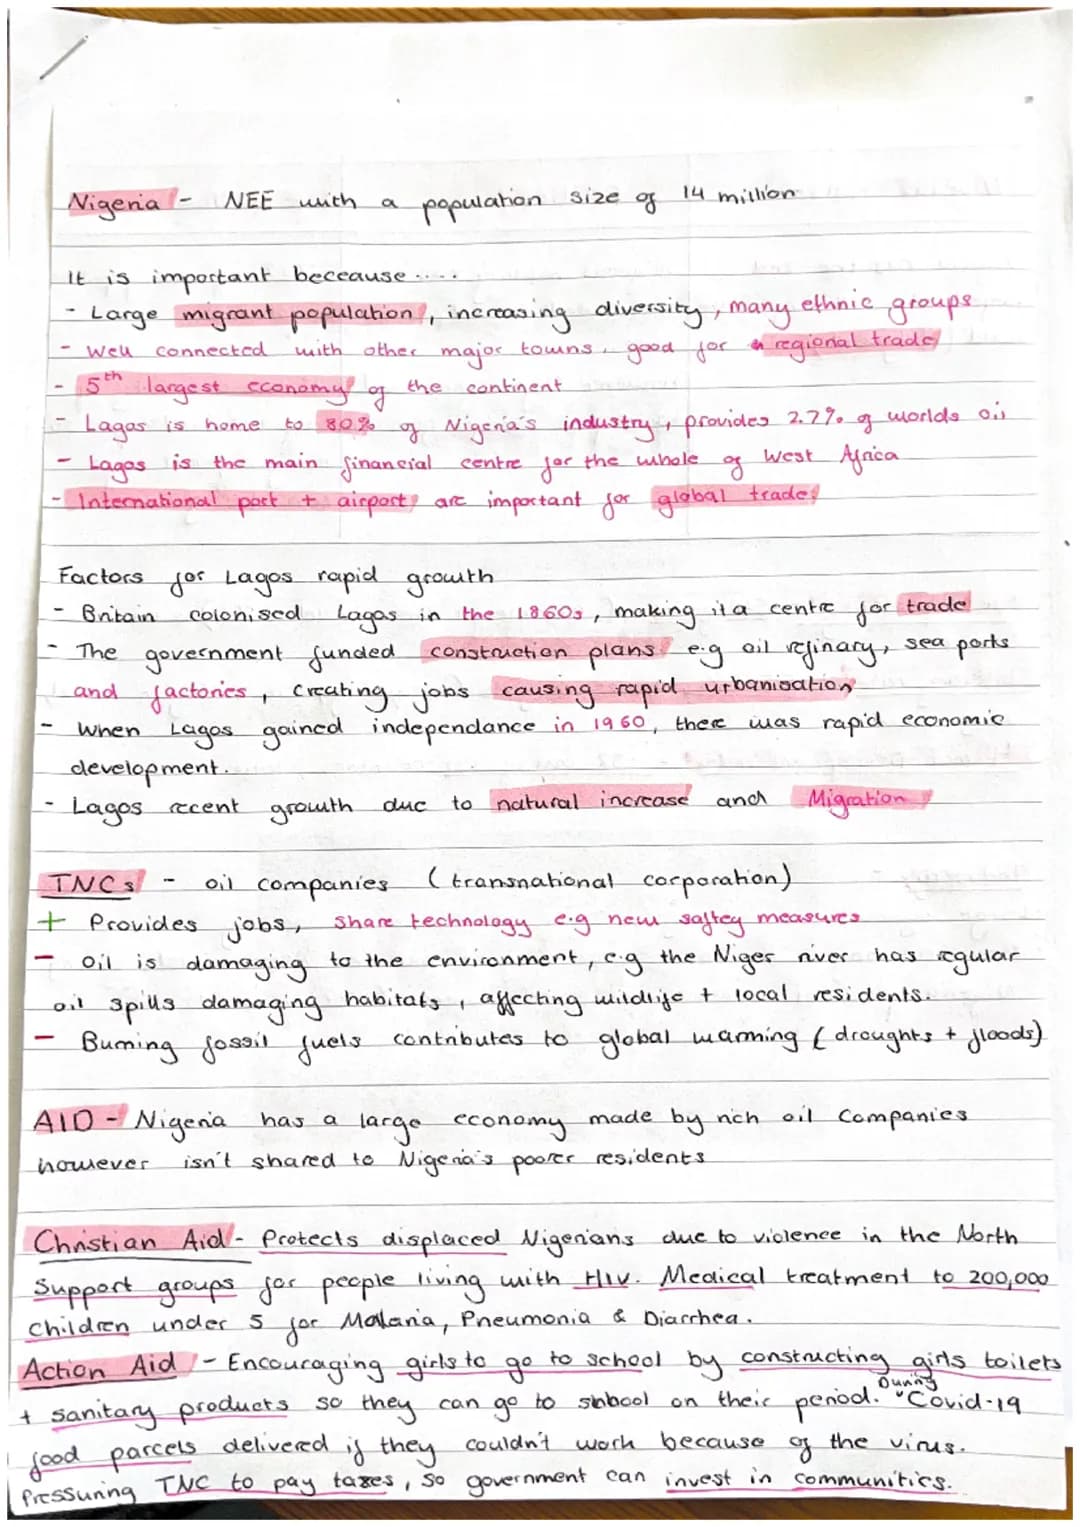 Nigeria - NEE with a population size of 14 million
It is important beceause ....
- Large migrant population, increasing diversity, many ethnic groups
- Well connected with other major towns, good for regional trade
- 5th largest economy of the continent
- Lagos is home to 80% of Nigeria's industry, provides 2.7% of worlds oil
- Lagos is the main financial centre for the whole of West Africa
- International port + airport are important for global trade.
Factors for Lagos rapid growth
- Britain colonised Lagos in the 1860s, making it a centre for trade
- The government funded construction plans e.g oil refinary, sea ports
and factories, creating jobs causing rapid urbanisation
- When Lagos gained independance in 1960, there was rapid economic
development.
- Lagos recent growth due to natural increase and Migration
TNCs - oil companies (transnational corporation)
+ Provides jobs, share technology e.g new saftey measures
- Oil is damaging to the environment, e.g the Niger river has regular
oil spills damaging habitats, affecting wildlife + local residents.
- Burning fossil fuels contributes to global warming (droughts + floods)
AID - Nigeria has a large economy made by rich oil companies
however isn't shared to Nigeria's poorer residents
Christian Aid - Protects displaced Nigerians due to violence in the North
Support groups for people living with HIV. Medical treatment to 200,000
children under 5 for Malaria, Pneumonia & Diarrhea.
Action Aid - Encouraging girls to go to school by constructing girls toilets
+ sanitary products so they can go to school on their period. During Covid-19
food parcels delivered if they couldn't work because of the virus.
Pressuring TNC to pay taxes, so government can invest in communities.